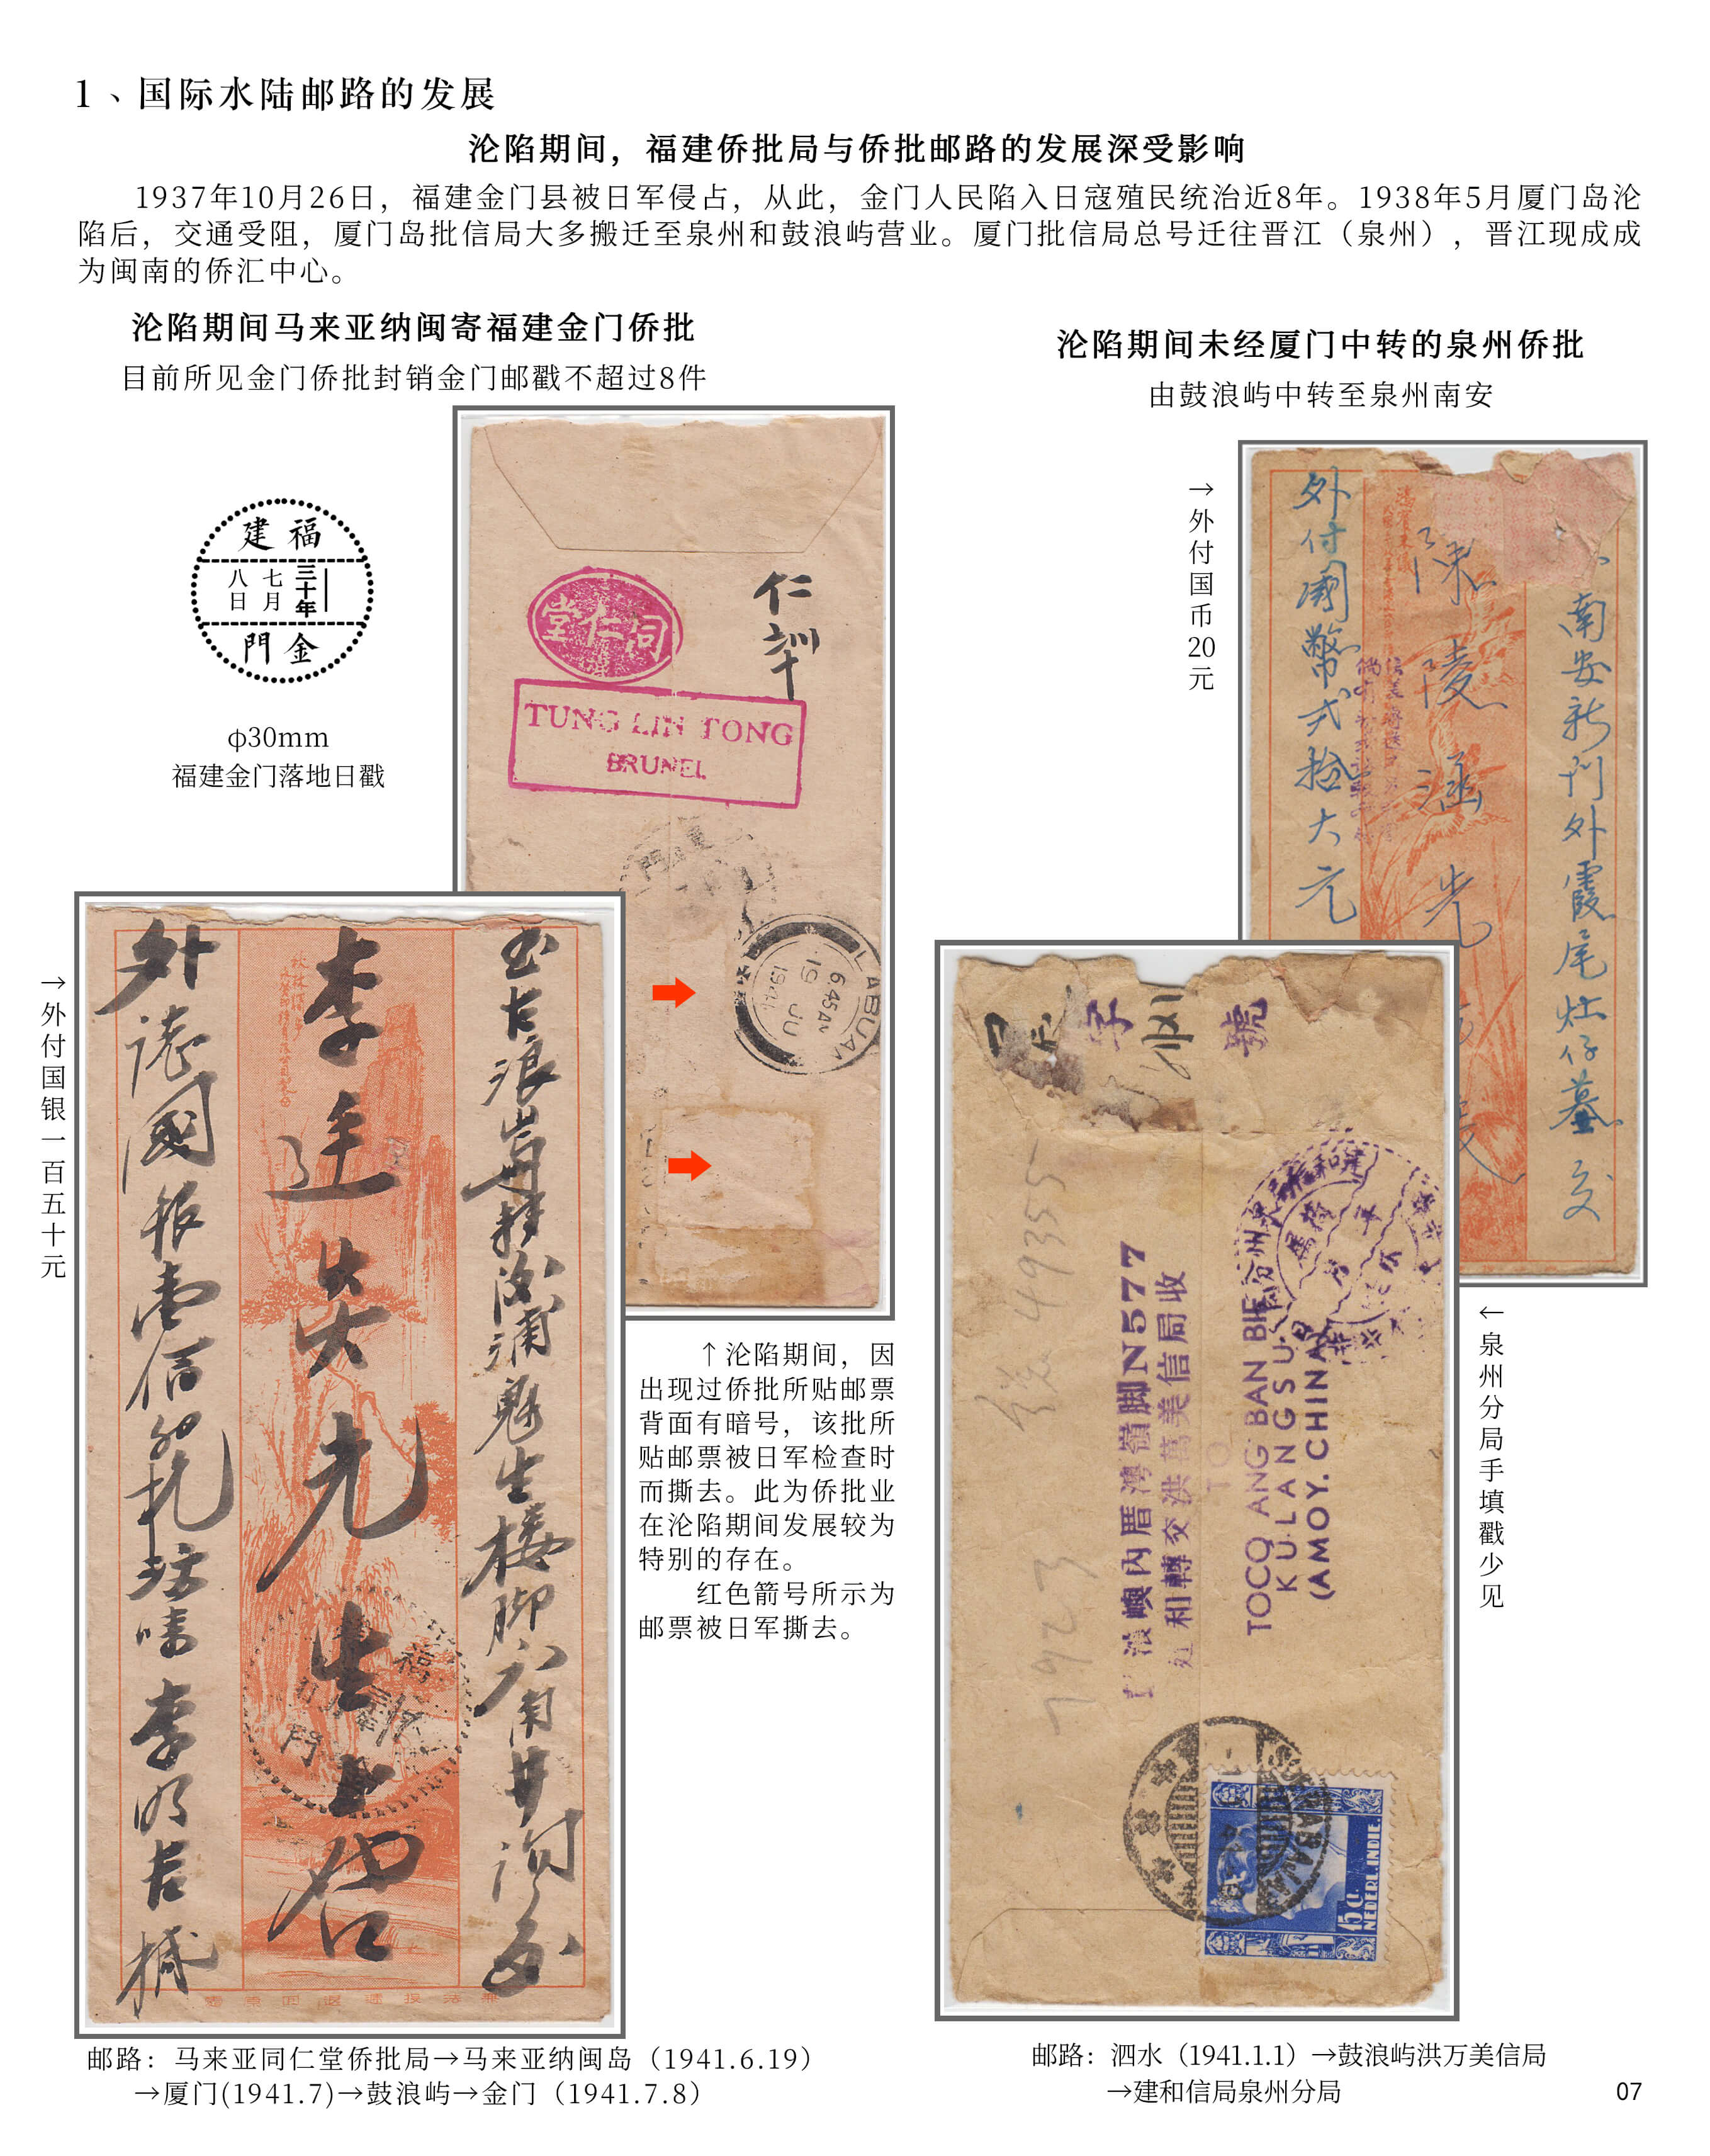 1、国际水陆邮路的发展
沦陷期间，福建侨批局与侨批邮路的发展深受影响
1937年10月26日，福建金门县被日军侵占，从此，金门人民陷入日寇殖民统治近8年。1938年5月厦门岛沦
陷后，交通受阻，厦门岛批信局大多搬迁至泉州和鼓浪屿营业。厦门批信局总号迁往晋江（泉州），晋江现成成
为闽南的侨汇中心。
沦陷期间马来亚纳闽寄福建金门侨批
目前所见金门侨批封销金门邮戳不超过8件
福建
三十年
七月
八日
金門
φ30mm
福建金门落地日戳
仁訓
同仁堂
TUNG LIN TONG
BRUNEI.
LABUAN
6.45AM
19 JU
1941
→外付国银一百五十元
李
先生
外
國銀壹佰
↑沦陷期间，因
出现过侨批所贴邮票
背面有暗号，该批所
贴邮票被日军检查时
而撕去。此为侨批业
在沦陷期间发展较为
特别的存在。
红色箭号所示为
邮票被日军撕去。
邮路：马来亚同仁堂侨批局→马来亚纳闽岛（1941.6.19）
→厦门(1941.7)→鼓浪屿→金门（1941.7.8）
沦陷期间未经厦门中转的泉州侨批
由鼓浪屿中转至泉州南安
→外付国币20元
南安新門外霞尾灶仔墓交
陳陵涵光
外付國幣弍拾大元
字
號
浪嶼內厝灣嶺脚N577
和轉交洪萬美信局收
TO
TOCO ANG BAN BIE
KULANGSU.
(AMOY. CHINA)
49355
7923
15 C.
NEDERL.INDIE.
←泉州分局手填戳少见
邮路：泗水（1941.1.1）→鼓浪屿洪万美信局
→建和信局泉州分局
07